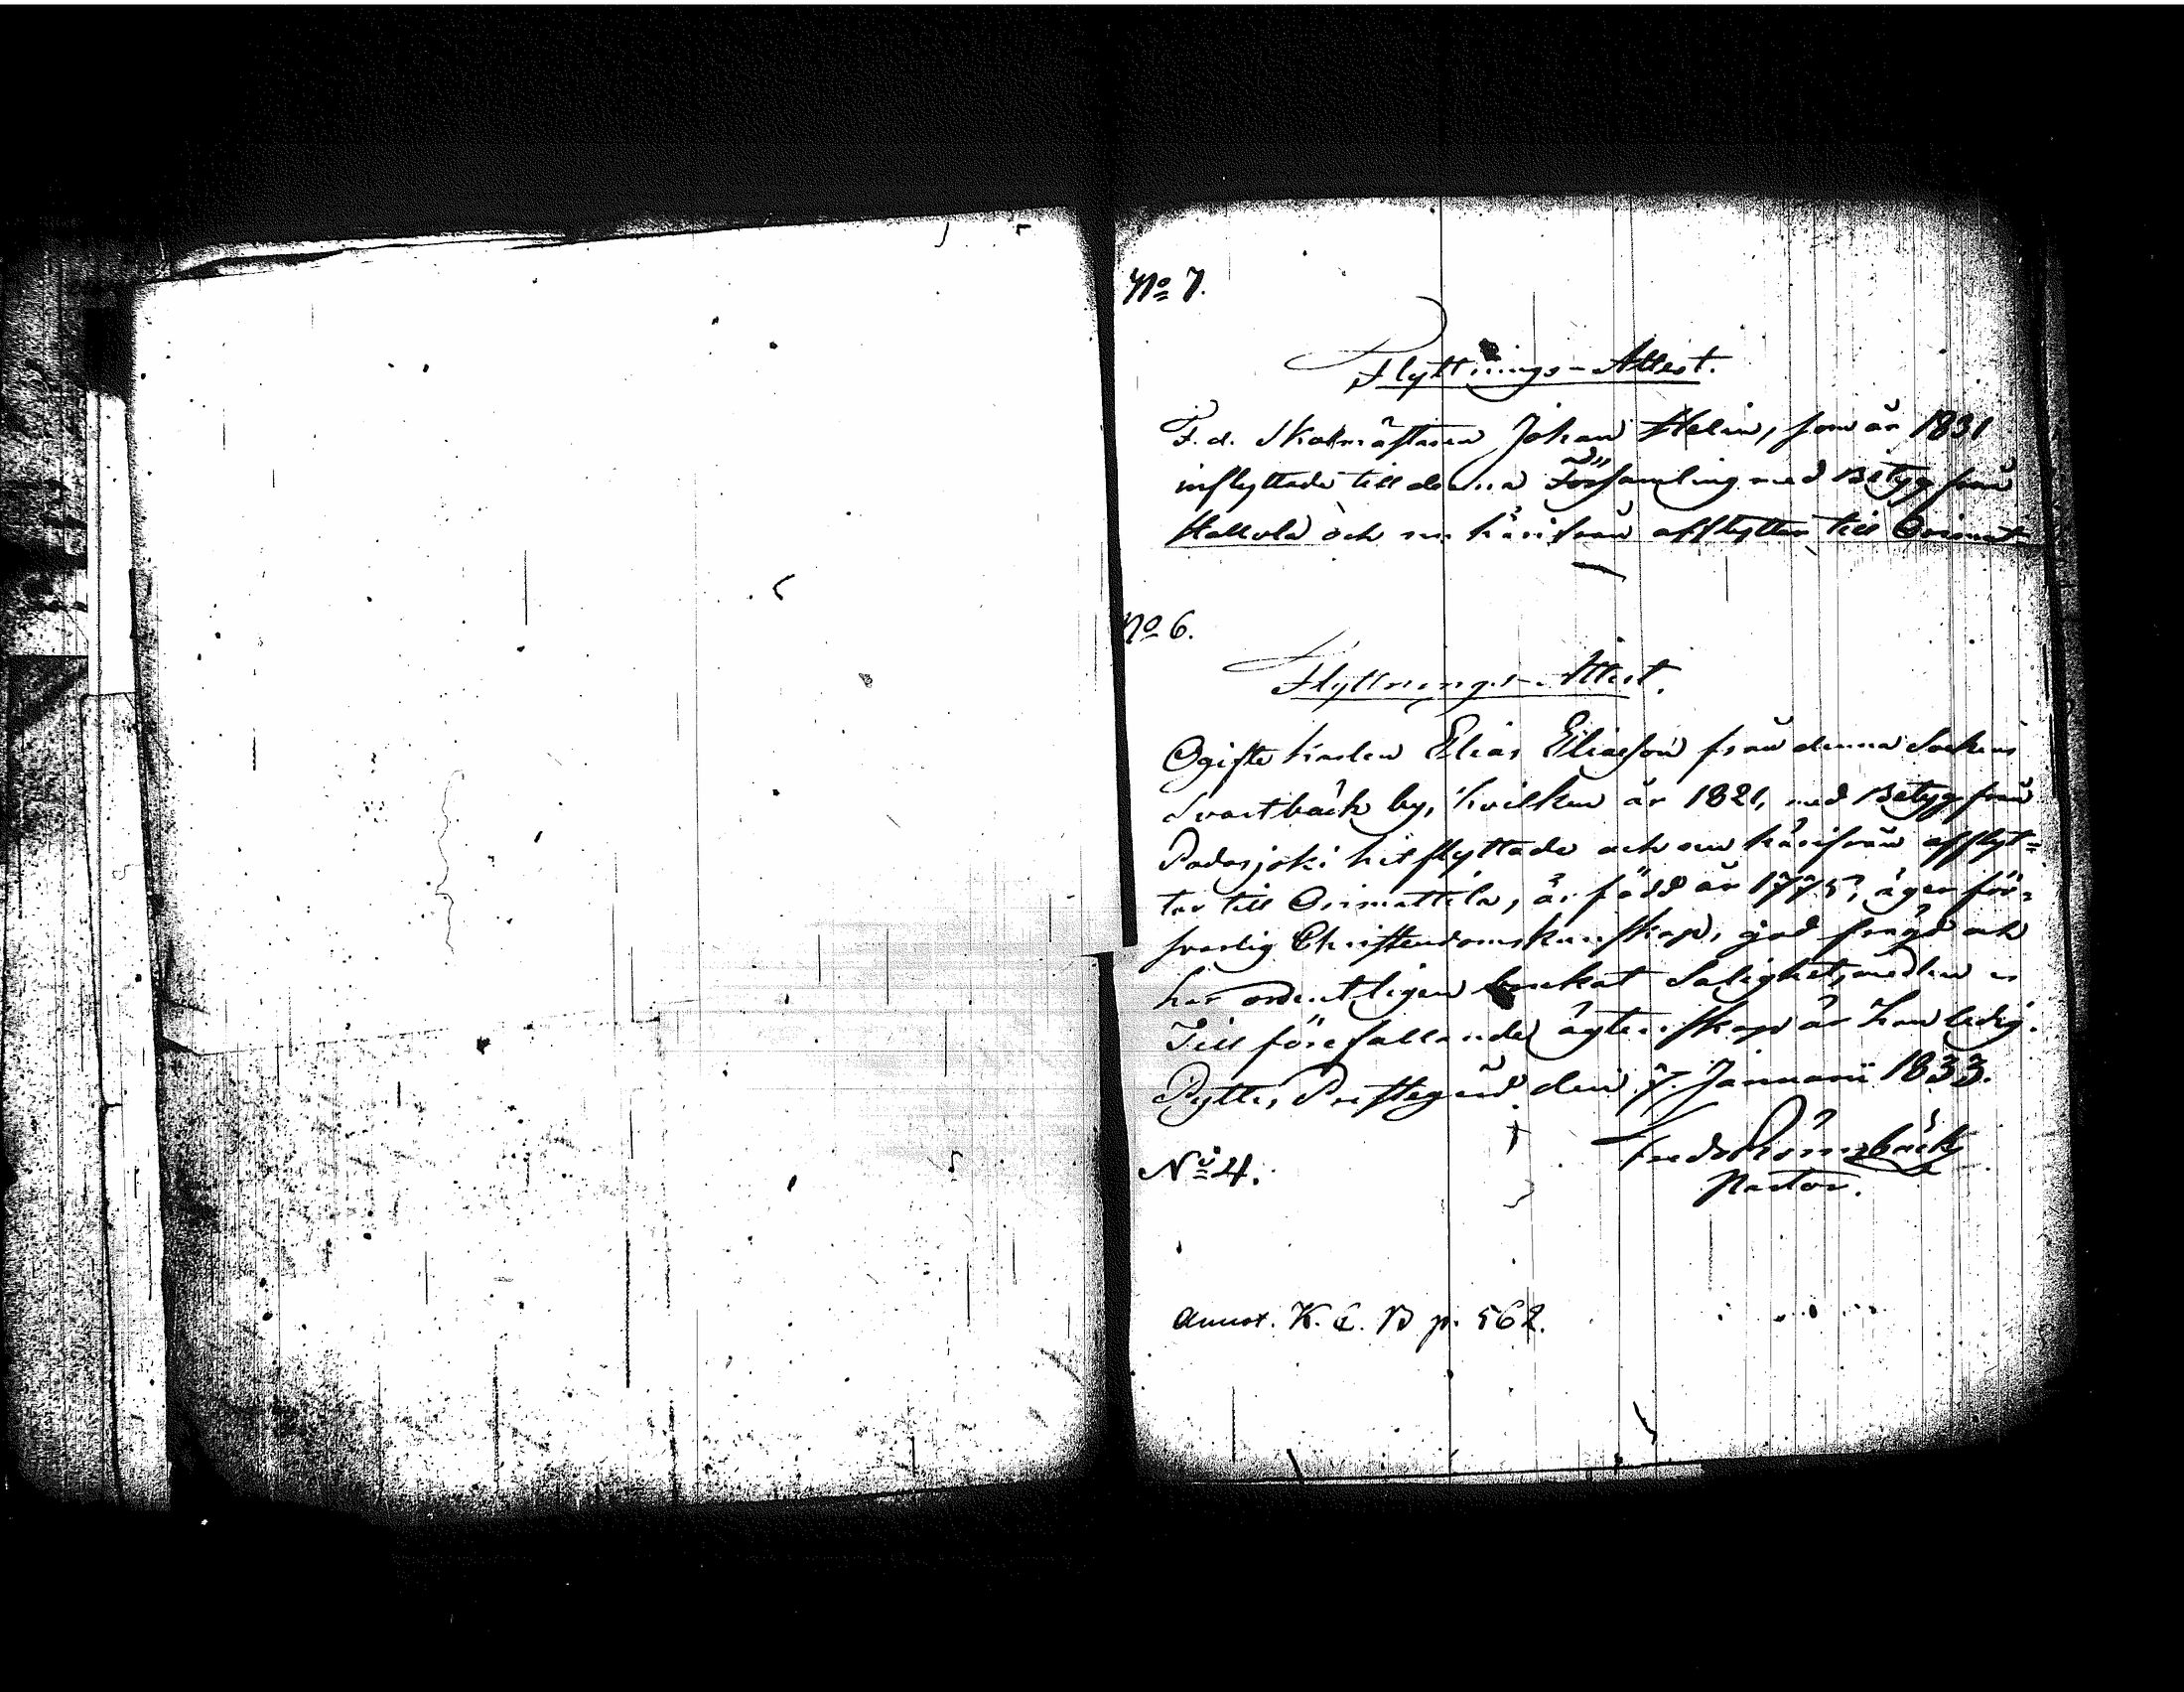 No 7.
Flyttnings-Attest.
F. d. Skolmästaren Johan Helin, som år 1831
inflyttade till denna Församling med Betyg från
Hollola och nu härifrån afflyttar till Orimat
No 6.
Flyttnings-Attest.
Ogifte Karlen Elias Eliasson från denna Sockens
Svartbäck by, hvilken år 1821, med Betyg från
Padasjoki hitflyttade och nu härifrån afflyt=
tar till Orimattila, är född år 1775, äger för=
svarlig Christendomskunskap, god frägd och
har ordentligen brukat Salighetsmedlen
Till förefallande ägtenskap är han ledig.
Pyttis Prestegård den 7. Januarii 1833.
No 4.
Fredr Rönnbäck
Pastor.
Annot. K. C. B p. 562.